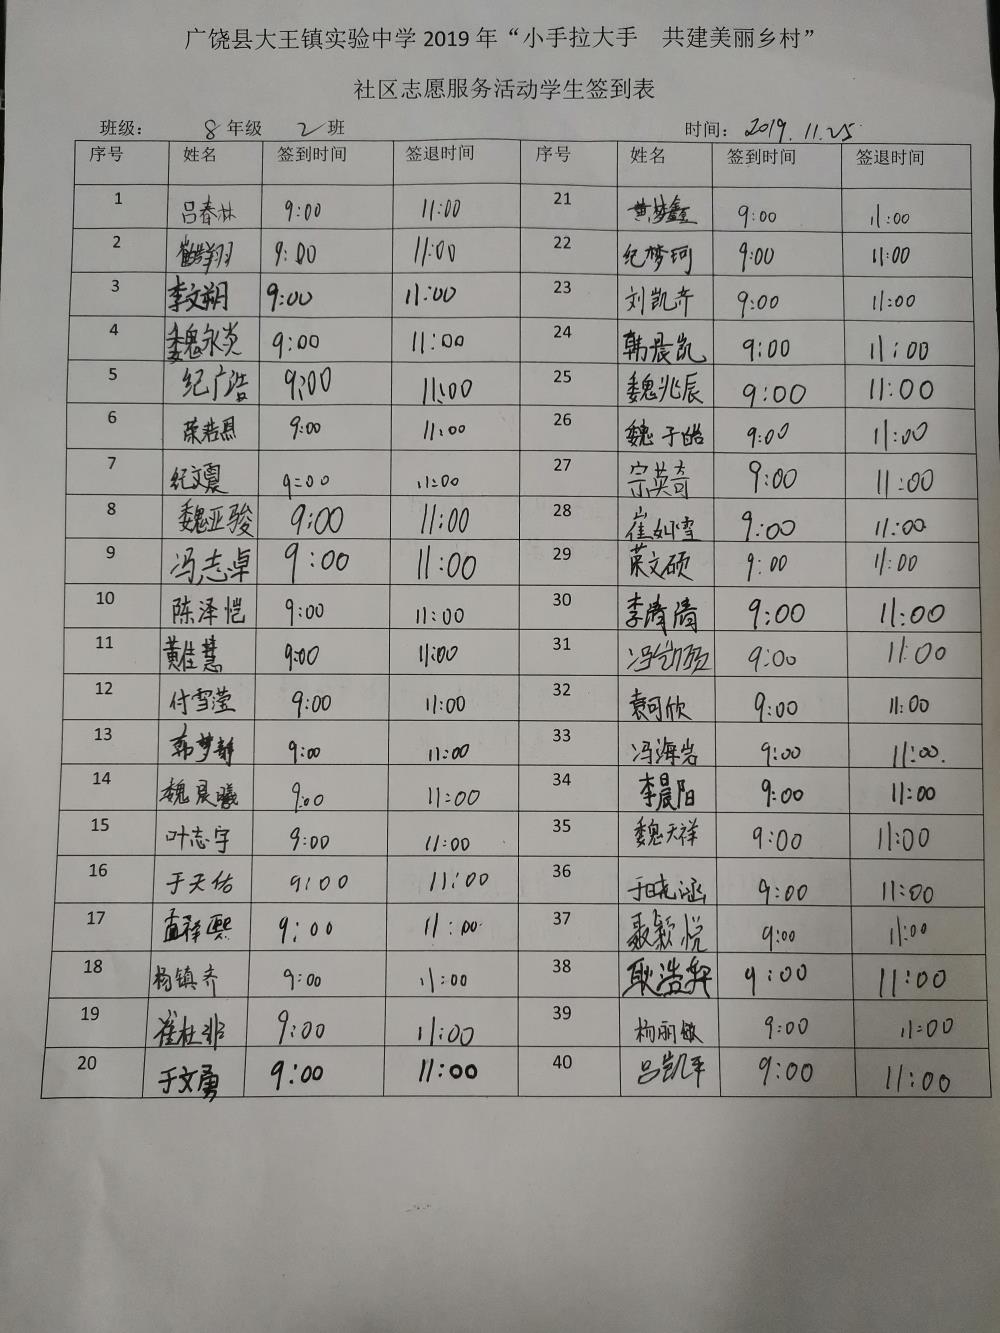 广饶县大王镇实验中学 2019 年“小手拉大手 共建美丽乡村”
社区志愿服务活动学生签到表
班级： 8 年级 2 班 时间：2019.11.25
序号 姓名 签到时间 签退时间 序号 姓名 签到时间 签退时间
1 吕春林 9:00 11:00 21 黄梦鑫 9:00 11:00
2 9:00 11:00 22 纪梦珂 9:00 11:00
3 李文朔 9:00 11:00 23 刘凯齐 9:00 11:00
4 魏永炎 9:00 11:00 24 韩晨凯 9:00 11:00
5 纪广浩 9:00 11:00 25 魏兆辰 9:00 11:00
6 荣若恩 9:00 11:00 26 魏子皓 9:00 11:00
7 纪文震 9:00 11:00 27 宗英奇 9:00 11:00
8 魏亚骏 9:00 11:00 28 崔如雪 9:00 11:00
9 冯志卓 9:00 11:00 29 荣文硕 9:00 11:00
10 陈泽恺 9:00 11:00 30 李清清 9:00 11:00
11 黄佳慧 9:00 11:00 31 9:00 11:00
12 付雪滢 9:00 11:00 32 袁可欣 9:00 11:00
13 韩梦静 9:00 11:00 33 冯海岩 9:00 11:00.
14 魏晨曦 9:00 11:00 34 李晨阳 9:00 11:00
15 叶志宇 9:00 11:00 35 魏天祥 9:00 11:00
16 于天佑 9:00 11:00 36 于晓涵 9:00 11:00
17 9:00 11:00 37 聂颖悦 9:00 11:00
18 杨镇齐 9:00 11:00 38 9:00 11:00
19 崔杜非 9:00 11:00 39 杨丽敏 9:00 11:00
20 于文勇 9:00 11:00 40 吕凯平 9:00 11:00